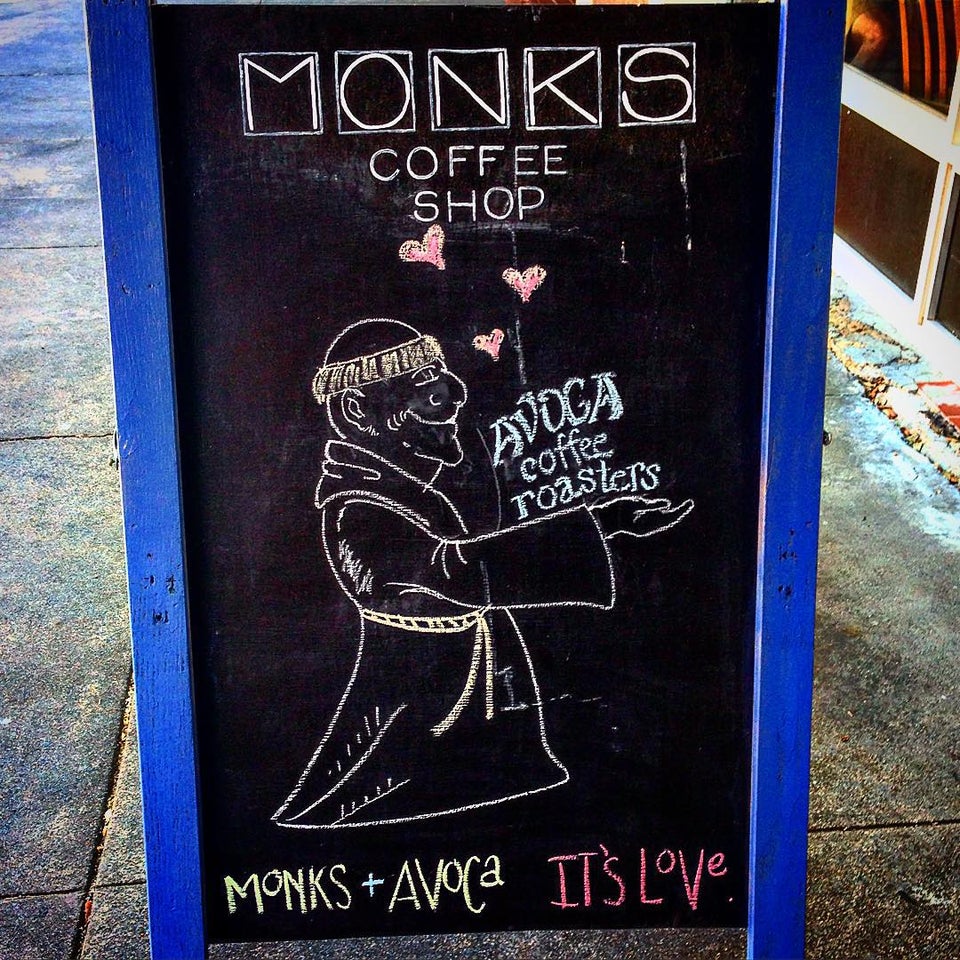 MONKS
COFFEE
SHOP
AVOCA
coffee
roasters
MONKS + AVOCa IT'S LOVe.